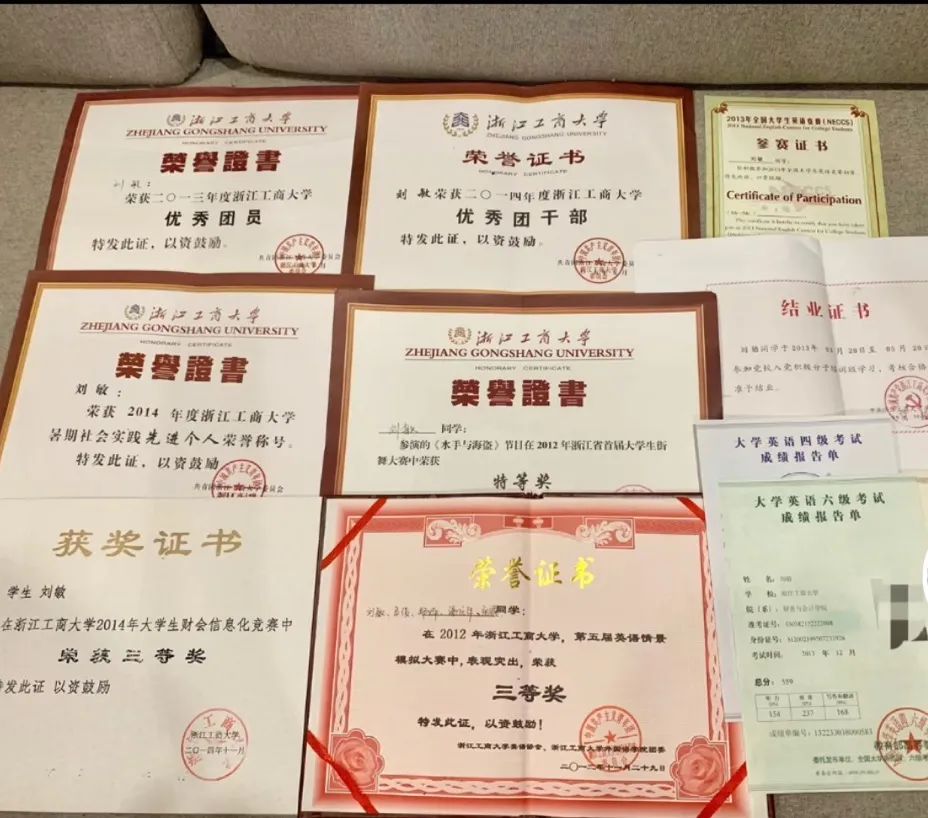 浙江工商大学
ZHEJIANG GONGSHANG UNIVERSITY
HONORARY CERTIFICATE
榮譽證書
刘敏:
荣获二〇一三年度浙江工商大学
优秀团员
特发此证,以资鼓励。
浙江工商大学
ZHEJIANG GONGSHANG UNIVERSITY
荣誉证书
HONORARY CERTIFICATE
刘敏荣获二〇一四年度浙江工商大学
优秀团干部
特发此证,以资鼓励。
2013年全国大学生英语竞赛(NECCS)
2013 National English Contest for College Students
参赛证书
刘敏 同学:
Certificate of Participation
结业证书
参加党校入党积极分子培训班学习,考核合格
准予结业。
浙江工商大学
ZHEJIANG GONGSHANG UNIVERSITY
HONORARY CERTIFICATE
榮譽證書
刘敏:
荣获 2014 年度浙江工商大学
暑期社会实践先进个人荣誉称号。
特发此证,以资鼓励
浙江工商大学
ZHEJIANG GONGSHANG UNIVERSITY
HONORARY CERTIFICATE
榮譽證書
刘敏 同学:
参演的《水手与海盗》节目在2012年浙江省首届大学生街
舞大赛中荣获
特等奖
大学英语四级考试
成绩报告单
获奖证书
学生 刘敏
在浙江工商大学2014年大学生财会信息化竞赛中
荣获三等奖
特发此证 以资鼓励
浙江工商大学
二〇一四年十一月
荣誉证书
同学:
在 2012 年浙江工商大学,第五届英语情景
模拟大赛中,表现突出,荣获
三等奖
特发此证,以资鼓励!
浙江工商大学英语协会、浙江工商大学外国语学院团委
二〇一二年十一月二十九日
大学英语六级考试
成绩报告单
姓 名: 刘敏
学 校: 浙江工商大学
院(系): 财务与会计学院
准考证号:
身份证号:
考试时间: 2013 年 12 月
总分: 559
听力
阅读
写作和翻译
154
237
168
成绩单编号: